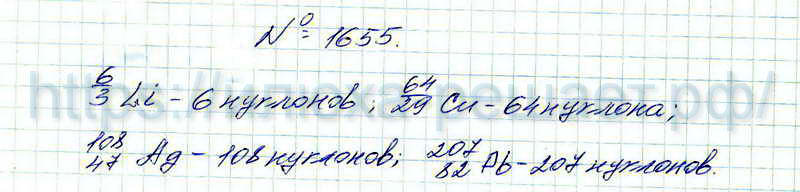 № 1655.
⁶₃Li – 6 нуклонов; ⁶⁴₂₉Cu – 64 нуклона;
¹⁰⁸₄₇Ag – 108 нуклонов; ²⁰⁷₈₂Pb – 207 нуклонов.